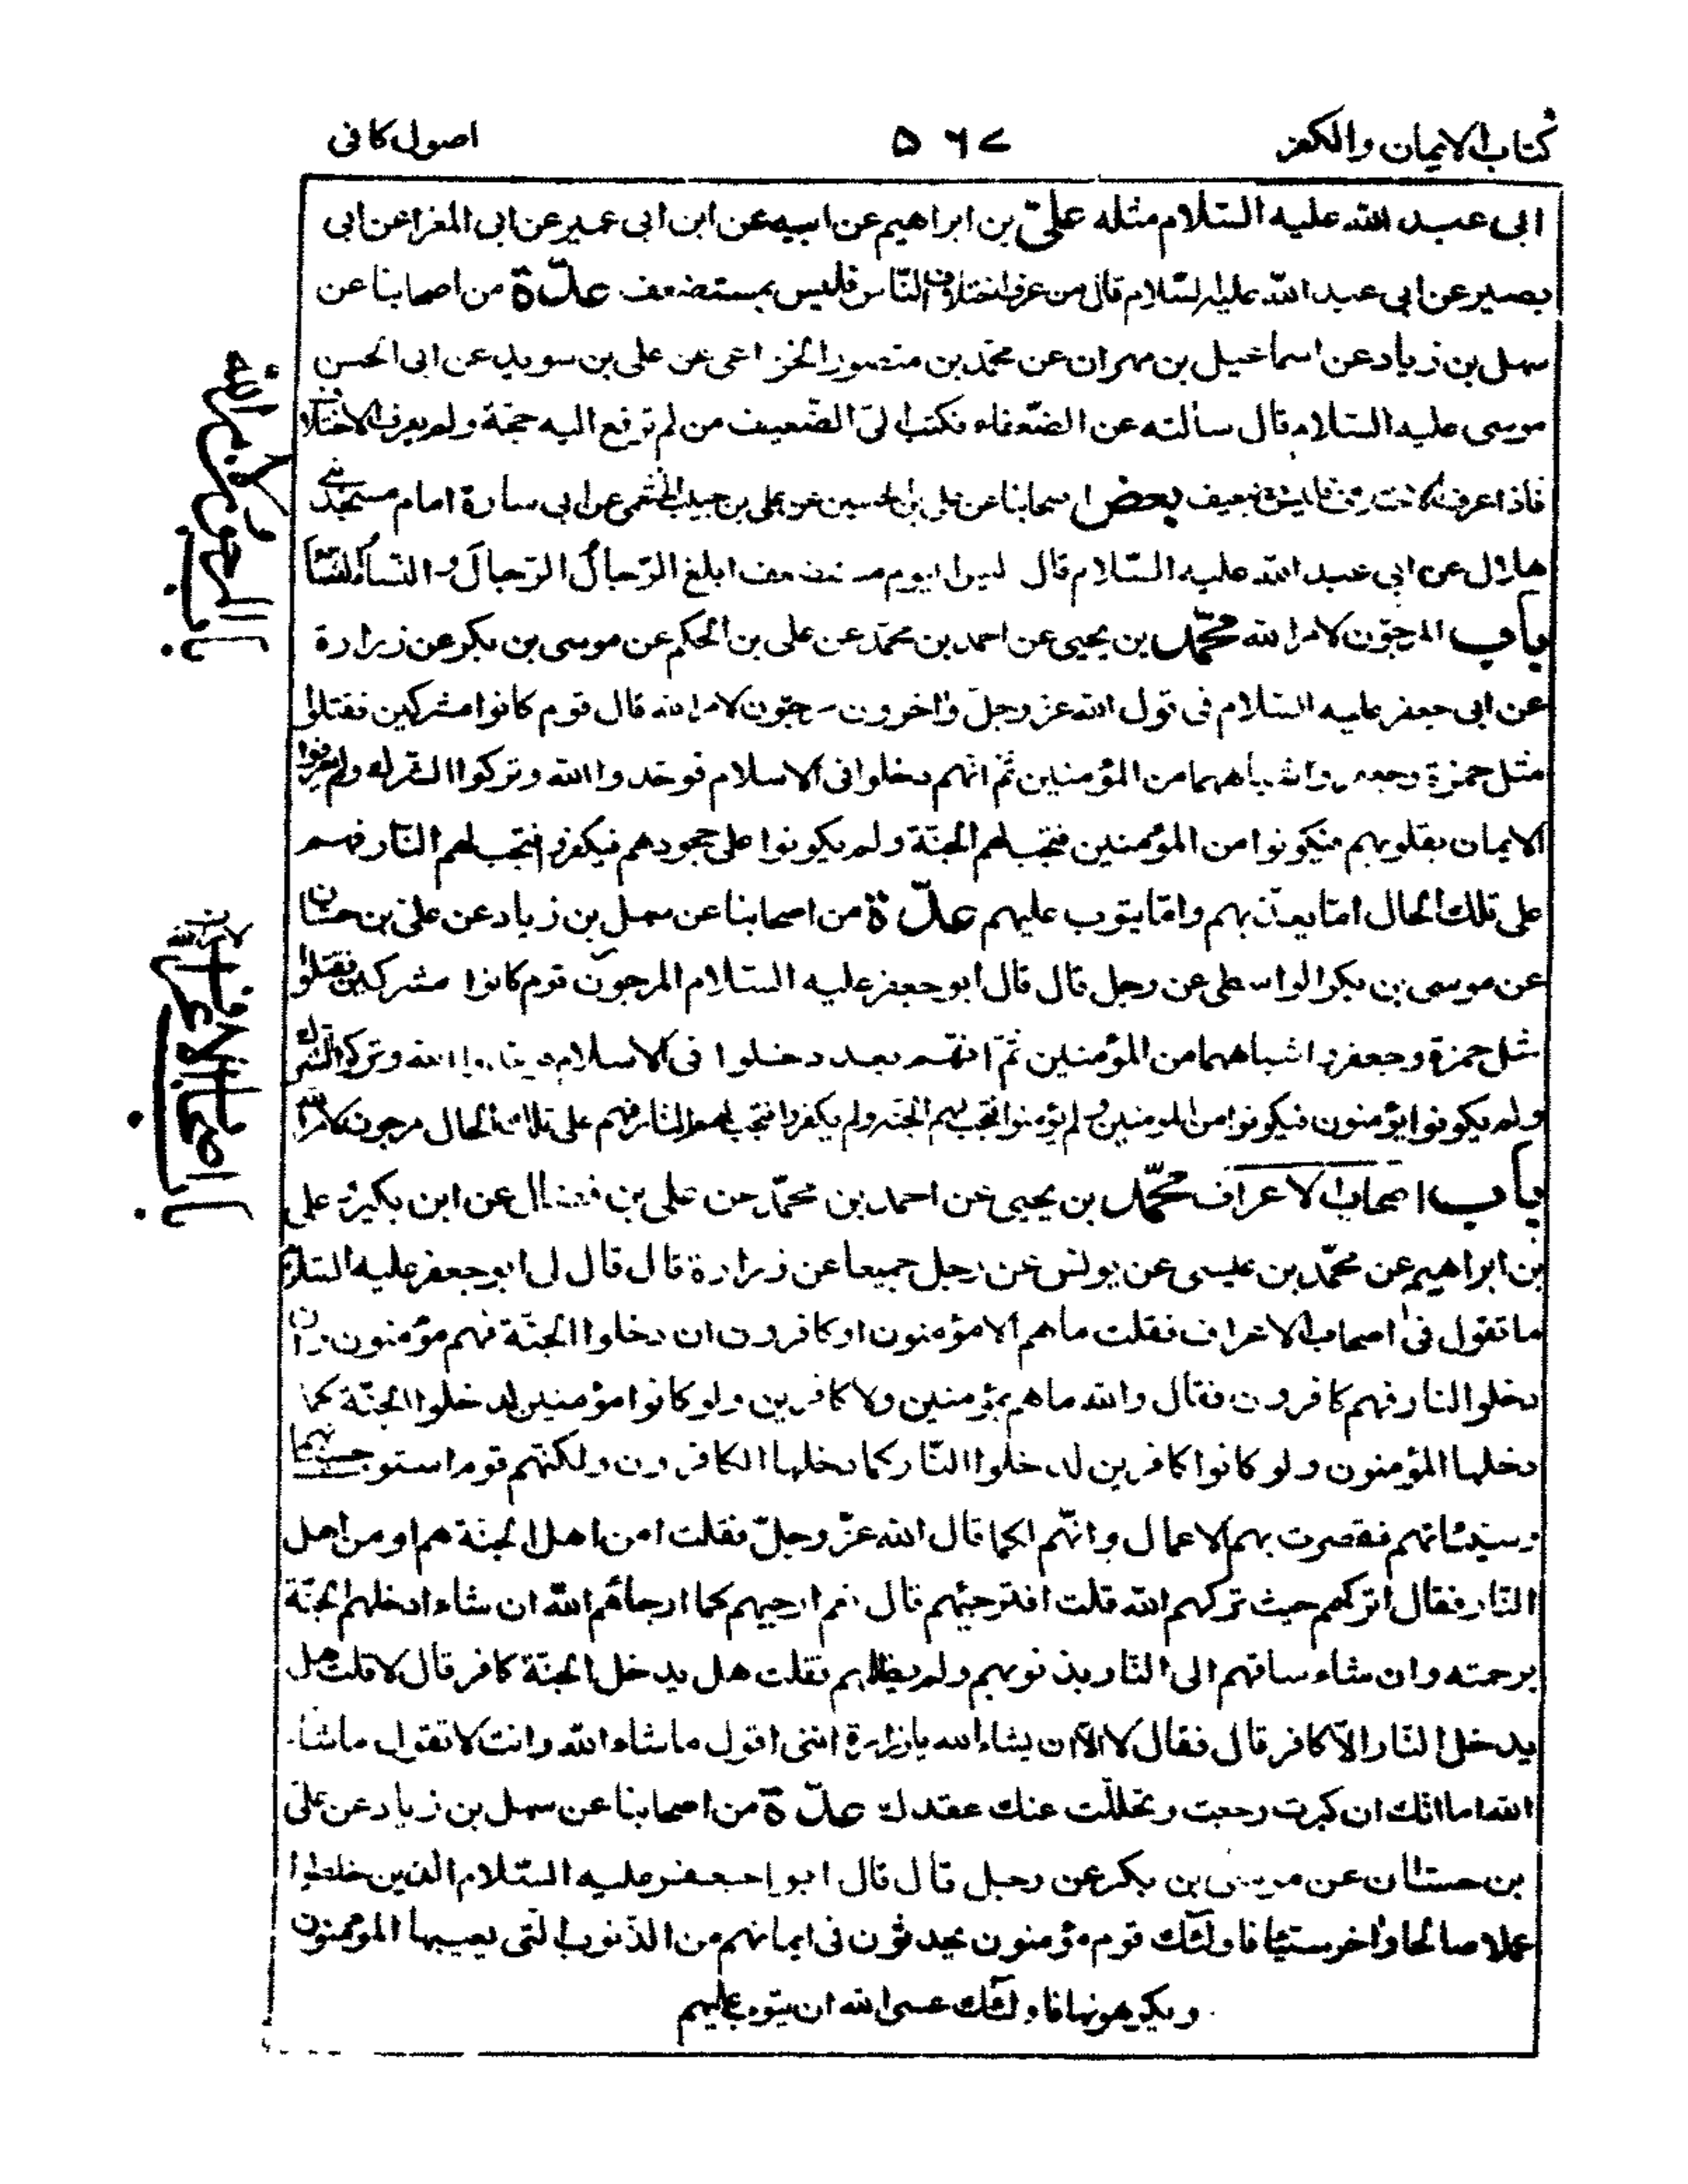 كتاب الايمان والكفر
۵۶۷
اصول كافى
ابى عبد الله عليه السّلام مثله علىّ بن ابراهيم عن ابيه عن ابن ابى عمير عن ابى المغرا عن ابى
بصير عن ابى عبد الله عليه السّلام قال من عرف اختلاف النّاس فليس بمستضعف عدّة من اصحابنا عن
سهل بن زياد عن اسماعيل بن مهران عن محمّد بن منصور الخزاعى عن على بن سويد عن ابى الحسن
موسى عليه السّلام قال سالته عن الضّعفاء فكتب الىّ الضّعيف من لم ترفع اليه حجّة ولم يعرف الاختلاف
فاذا عرف الاختلاف فليس بضعيف بعض اصحابنا عن على بن الحسين عن على بن حبيب الخثعمى عن ابى سارة امام مسجد بنى
هلال عن ابى عبد الله عليه السّلام قال ليس اليوم مستضعف ابلغ الرّجالُ الرّجالَ والنّساءُ النّساءَ
باب المرجوّن لامر الله محمّد بن يحيى عن احمد بن محمّد عن على بن الحكم عن موسى بن بكر عن زرارة
عن ابى جعفر عليه السّلام فى قول الله عز وجلّ واخرون مرجوّن لامر الله قال قوم كانوا مشركين فقتلوا
مثل حمزة وجعفر واشباههما من المؤمنين ثمّ انّهم دخلوا فى الاسلام فوحّدوا الله وتركوا الشّرك ولم يعرفوا
الايمان بقلوبهم فيكونوا من المؤمنين فتجب لهم الجنّة ولم يكونوا على جحودهم فيكفروا فتجب لهم النّار فهم
على تلك الحال امّا يعذّبهم وامّا يتوب عليهم عدّة من اصحابنا عن سهل بن زياد عن على بن حسان
عن موسى بن بكر الواسطى عن رجل قال قال ابو جعفر عليه السّلام المرجون قوم كانوا مشركين فقتلوا
مثل حمزة وجعفر واشباههما من المؤمنين ثمّ انّهم بعد دخلوا فى الاسلام فوحّدوا الله وتركوا الشّرك
ولم يكونوا يؤمنون فيكونوا من المومنين ولم يؤمنوا فتجب لهم الجنّة ولم يكفروا فتجب لهم النّار فهم على تلك الحال مرجون لامر الله
باب اصحاب الاعراف محمّد بن يحيى عن احمد بن محمّد عن على بن فضال عن ابن بكير و على
بن ابراهيم عن محمّد بن عيسى عن يونس عن رجل جميعا عن زرارة قال قال لى ابو جعفر عليه السّلام
ما تقول فى اصحاب الاعراف فقلت ما هم الا مؤمنون او كافرون ان دخلوا الجنّة فهم مؤمنون وان
دخلوا النار فهم كافرون فقال والله ما هم بمؤمنين ولا كافرين ولو كانوا مؤمنين لدخلوا الجنّة كما
دخلها المؤمنون ولو كانوا كافرين لدخلوا النّار كما دخلها الكافرون ولكنّهم قوم استوت حسناتهم
وسيّئاتهم فقصرت بهم الاعمال وانّهم لكما قال الله عزّ وجلّ فقلت امن اهل الجنّة هم او من اهل
النّار فقال اتركهم حيث تركهم الله قلت افترجئهم قال نعم ارجيهم كما ارجاهم الله ان شاء ادخلهم الجنّة
برحمته وان شاء ساقهم الى النّار بذنوبهم ولم يظلمهم فقلت هل يدخل الجنّة كافر قال لا قلت هل
يدخل النّار الّا كافر قال فقال لا الّا ان يشاء الله يا زرارة انّنى اقول ما شاء الله وانت لا تقول ما شاء
الله اما انّك ان كبرت رجعت وتحلّلت عنك عقدك عدّة من اصحابنا عن سهل بن زياد عن علىّ
بن حسّان عن موسى بن بكر عن رجل قال قال ابو جعفر عليه السّلام الّذين خلطوا
عملا صالحا واخر سيّئا فاولئك قوم مؤمنون يحدثون فى ايمانهم من الذّنوب الّتى يعيبها المؤمنون
ويكرهونها فاولئك عسى الله ان يتوب عليهم
باب المرجون لامر الله
باب اصحاب الاعراف